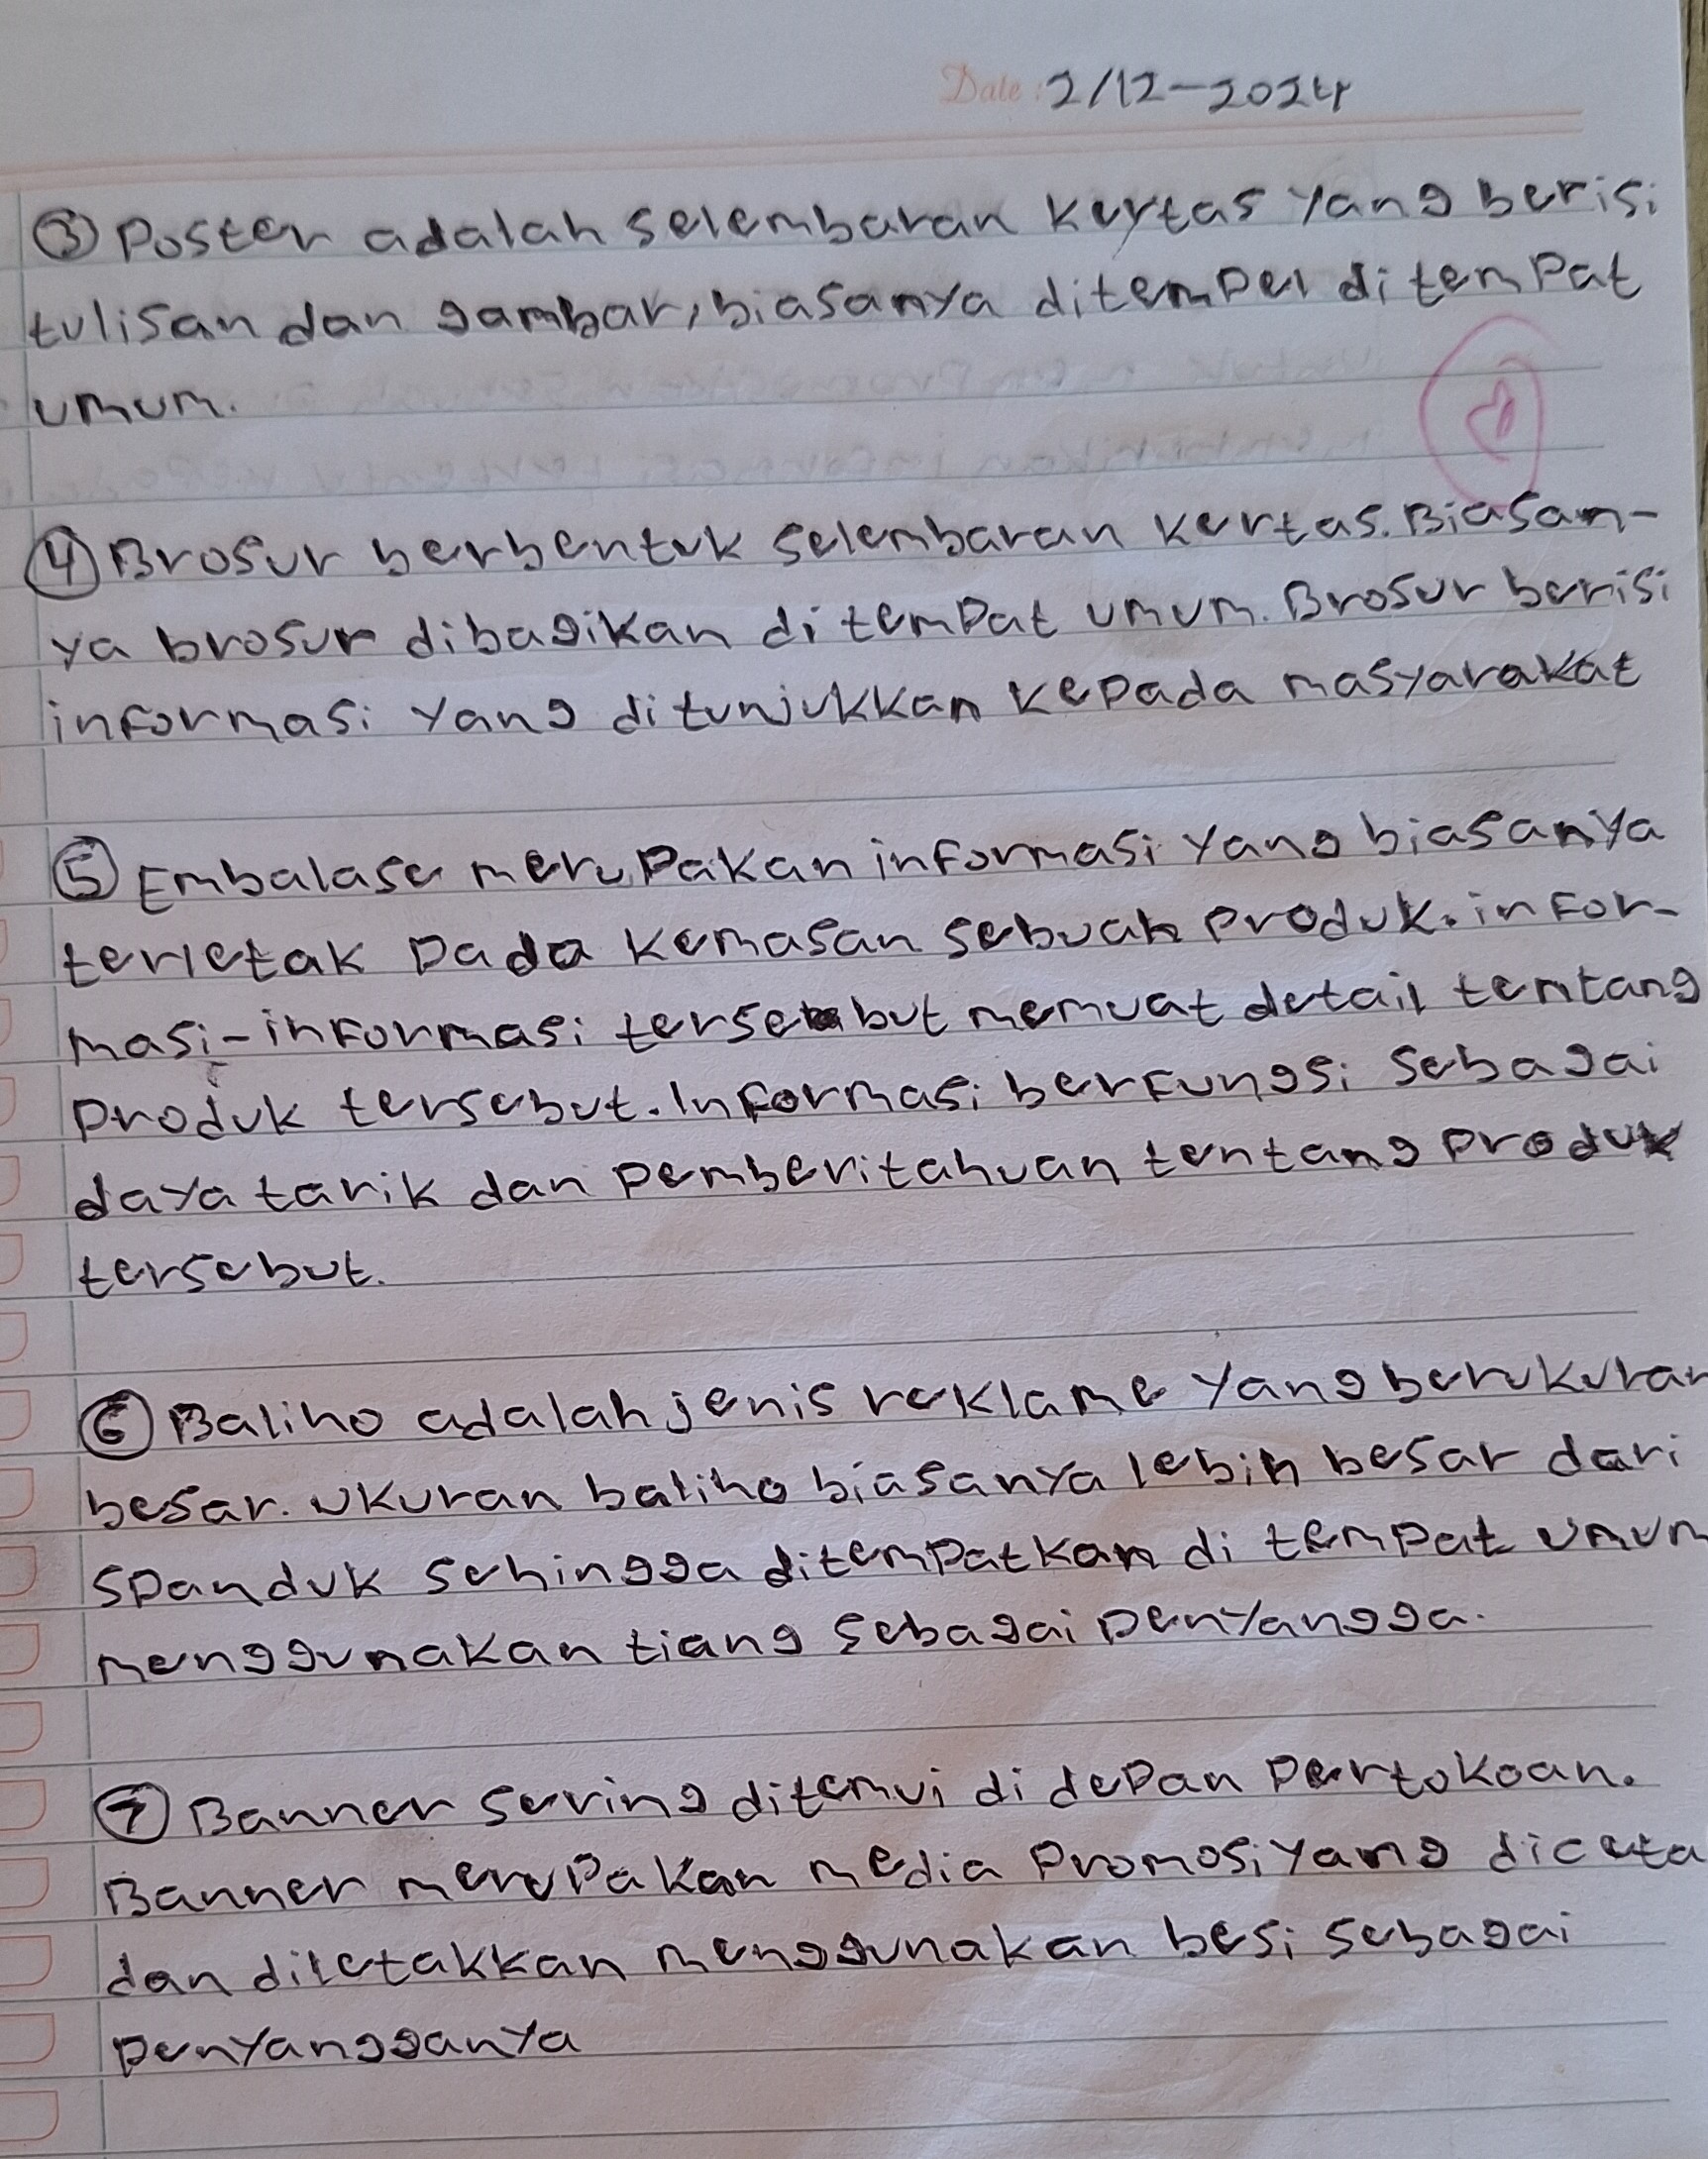 Date: 2/12-2024
③ Poster adalah selembaran kertas yang berisi
tulisan dan gambar, biasanya ditempel di tempat
umum.
④ Brosur berbentuk selembaran kertas. Biasan-
ya brosur dibagikan di tempat umum. Brosur berisi
informasi yang ditunjukkan kepada masyarakat
⑤ Embalase merupakan informasi yang biasanya
terletak pada kemasan sebuah produk. infor-
masi-informasi tersebut memuat detail tentang
produk tersebut. Informasi berfungsi sebagai
daya tarik dan pemberitahuan tentang produk
tersebut.
⑥ Baliho adalah jenis reklame yang berukuran
besar. ukuran baliho biasanya lebih besar dari
spanduk sehingga ditempatkan di tempat umum
menggunakan tiang sebagai penyangga.
⑦ Banner sering ditemui di depan pertokoan.
Banner merupakan media promosi yang diceta
dan diletakkan menggunakan besi sebagai
penyangganya